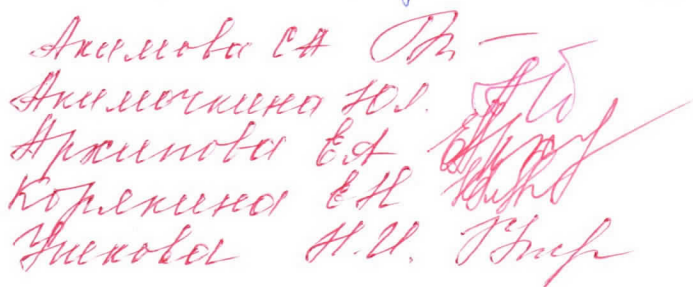 Акимова СА
Акимочкина Юл.
Архипова ЕА
Корякина ЕН
Н.И.